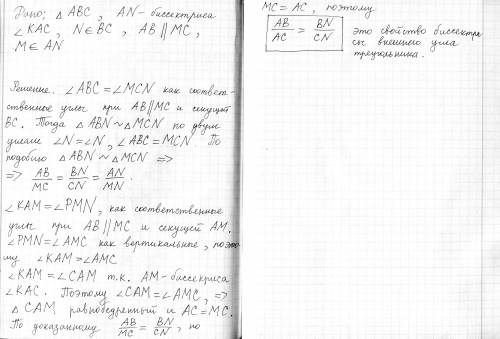 Дано: △ ABC, AN - биссектриса
∠KAC, N∈BC, AB ∥ MC,
M∈AN
Решение. ∠ABC = ∠MCN как соответ-
ственные углы при AB∥MC и секущей
BC. Тогда △ABN ~ △MCN по двум
углам ∠N = ∠N, ∠ABC = MCN. По
подобию △ABN ~ △MCN =>
=> AB/MC = BN/CN = AN/MN.
∠KAM = ∠PMN, как соответственные
углы при AB ∥ MC и секущей AM.
∠PMN = ∠AMC как вертикальные, поэто
му ∠KAM = ∠AMC
∠KAM = ∠CAM т.к. AM - биссекриса
∠KAC. Поэтому ∠CAM = ∠AMC, =>
△ CAM равнобедренный и AC = MC.
По доказанному AB/MC = BN/CN, но
MC = AC, поэтому
AB/AC = BN/CN это свойство биссектри
сы внешнего угла
треугольника.